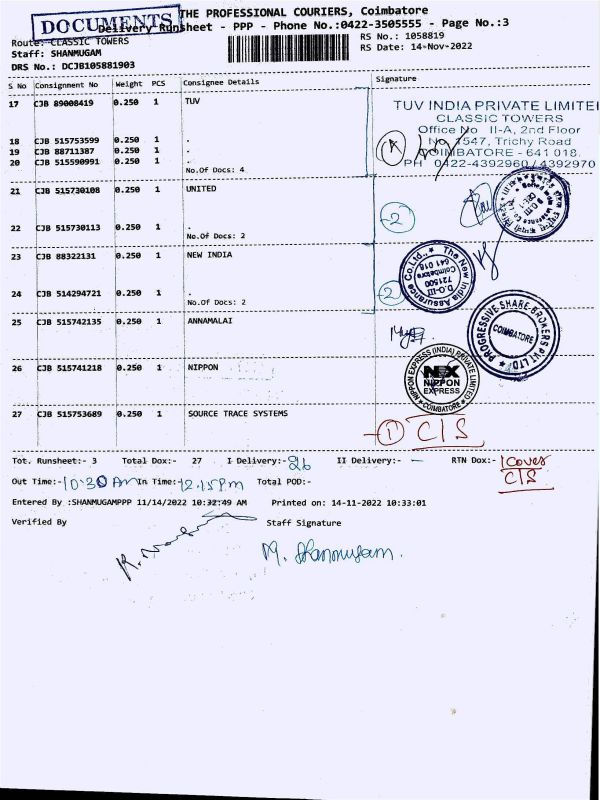 DOCUMENTS
THE PROFESSIONAL COURIERS, Coimbatore
Delivery Runsheet - PPP - Phone No.:0422-3505555 - Page No.:3
Route: CLASSIC TOWERS
RS No.: 1058819
Staff: SHANMUGAM
RS Date: 14-Nov-2022
DRS No.: DCJB105881903
S No Consignment No Weight PCS Consignee Details Signature
17 CJB 89008419 0.250 1 TUV
TUV INDIA PRIVATE LIMITE
CLASSIC TOWERS
Office No II-A, 2nd Floor
No 1547, Trichy Road
COIMBATORE - 641 018.
PH 0422-4392960 / 4392970
18 CJB 515753599 0.250 1 .
19 CJB 88711387 0.250 1 .
20 CJB 515590991 0.250 1 .
No.Of Docs: 4
21 CJB 515730108 0.250 1 UNITED
22 CJB 515730113 0.250 1 .
No.Of Docs: 2
2
23 CJB 88322131 0.250 1 NEW INDIA
The New India Assurance Co.Ltd.,
D.O-III
721500
Coimbatore
641 018
24 CJB 514294721 0.250 1 .
No.Of Docs: 2
2
25 CJB 515742135 0.250 1 ANNAMALAI
PROGRESSIVE SHARE BROKERS PVT LTD
COIMBATORE
26 CJB 515741218 0.250 1 NIPPON
NIPPON EXPRESS (INDIA) PRIVATE LIMITED
NEX
NIPPON
EXPRESS
COIMBATORE
27 CJB 515753689 0.250 1 SOURCE TRACE SYSTEMS
1 C/S
Tot. Runsheet:- 3 Total Dox:- 27 I Delivery:- 26 II Delivery:- - RTN Dox:- 1 Cover
C/S
Out Time:- 10:30 Am In Time: 12:15 Pm Total POD:-
Entered By :SHANMUGAMPPP 11/14/2022 10:32:49 AM Printed on: 14-11-2022 10:33:01
Verified By Staff Signature
M. Shanmugam.